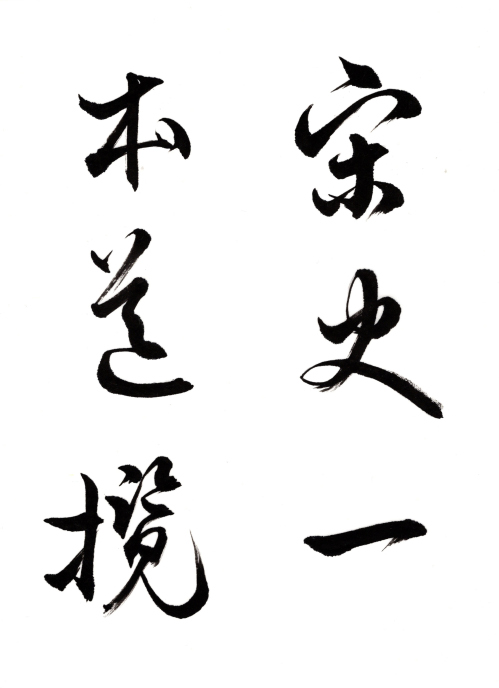 宋史一
本道攬